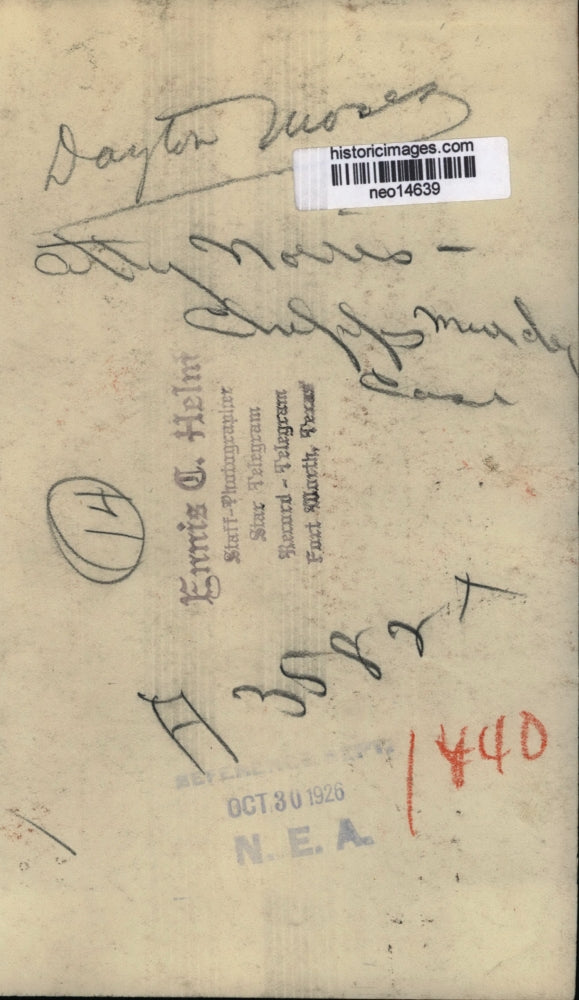 Dayton Moses
historicimages.com
neo14639
Atty Norris -
Chipps Murder
Case
Ennis C. Helm
Staff-Photographer
Star Telegram
Record - Telegram
Fort Worth, Texas
14
A 35827
1440
REFERENCE DEPT.
OCT 30 1926
N. E. A.